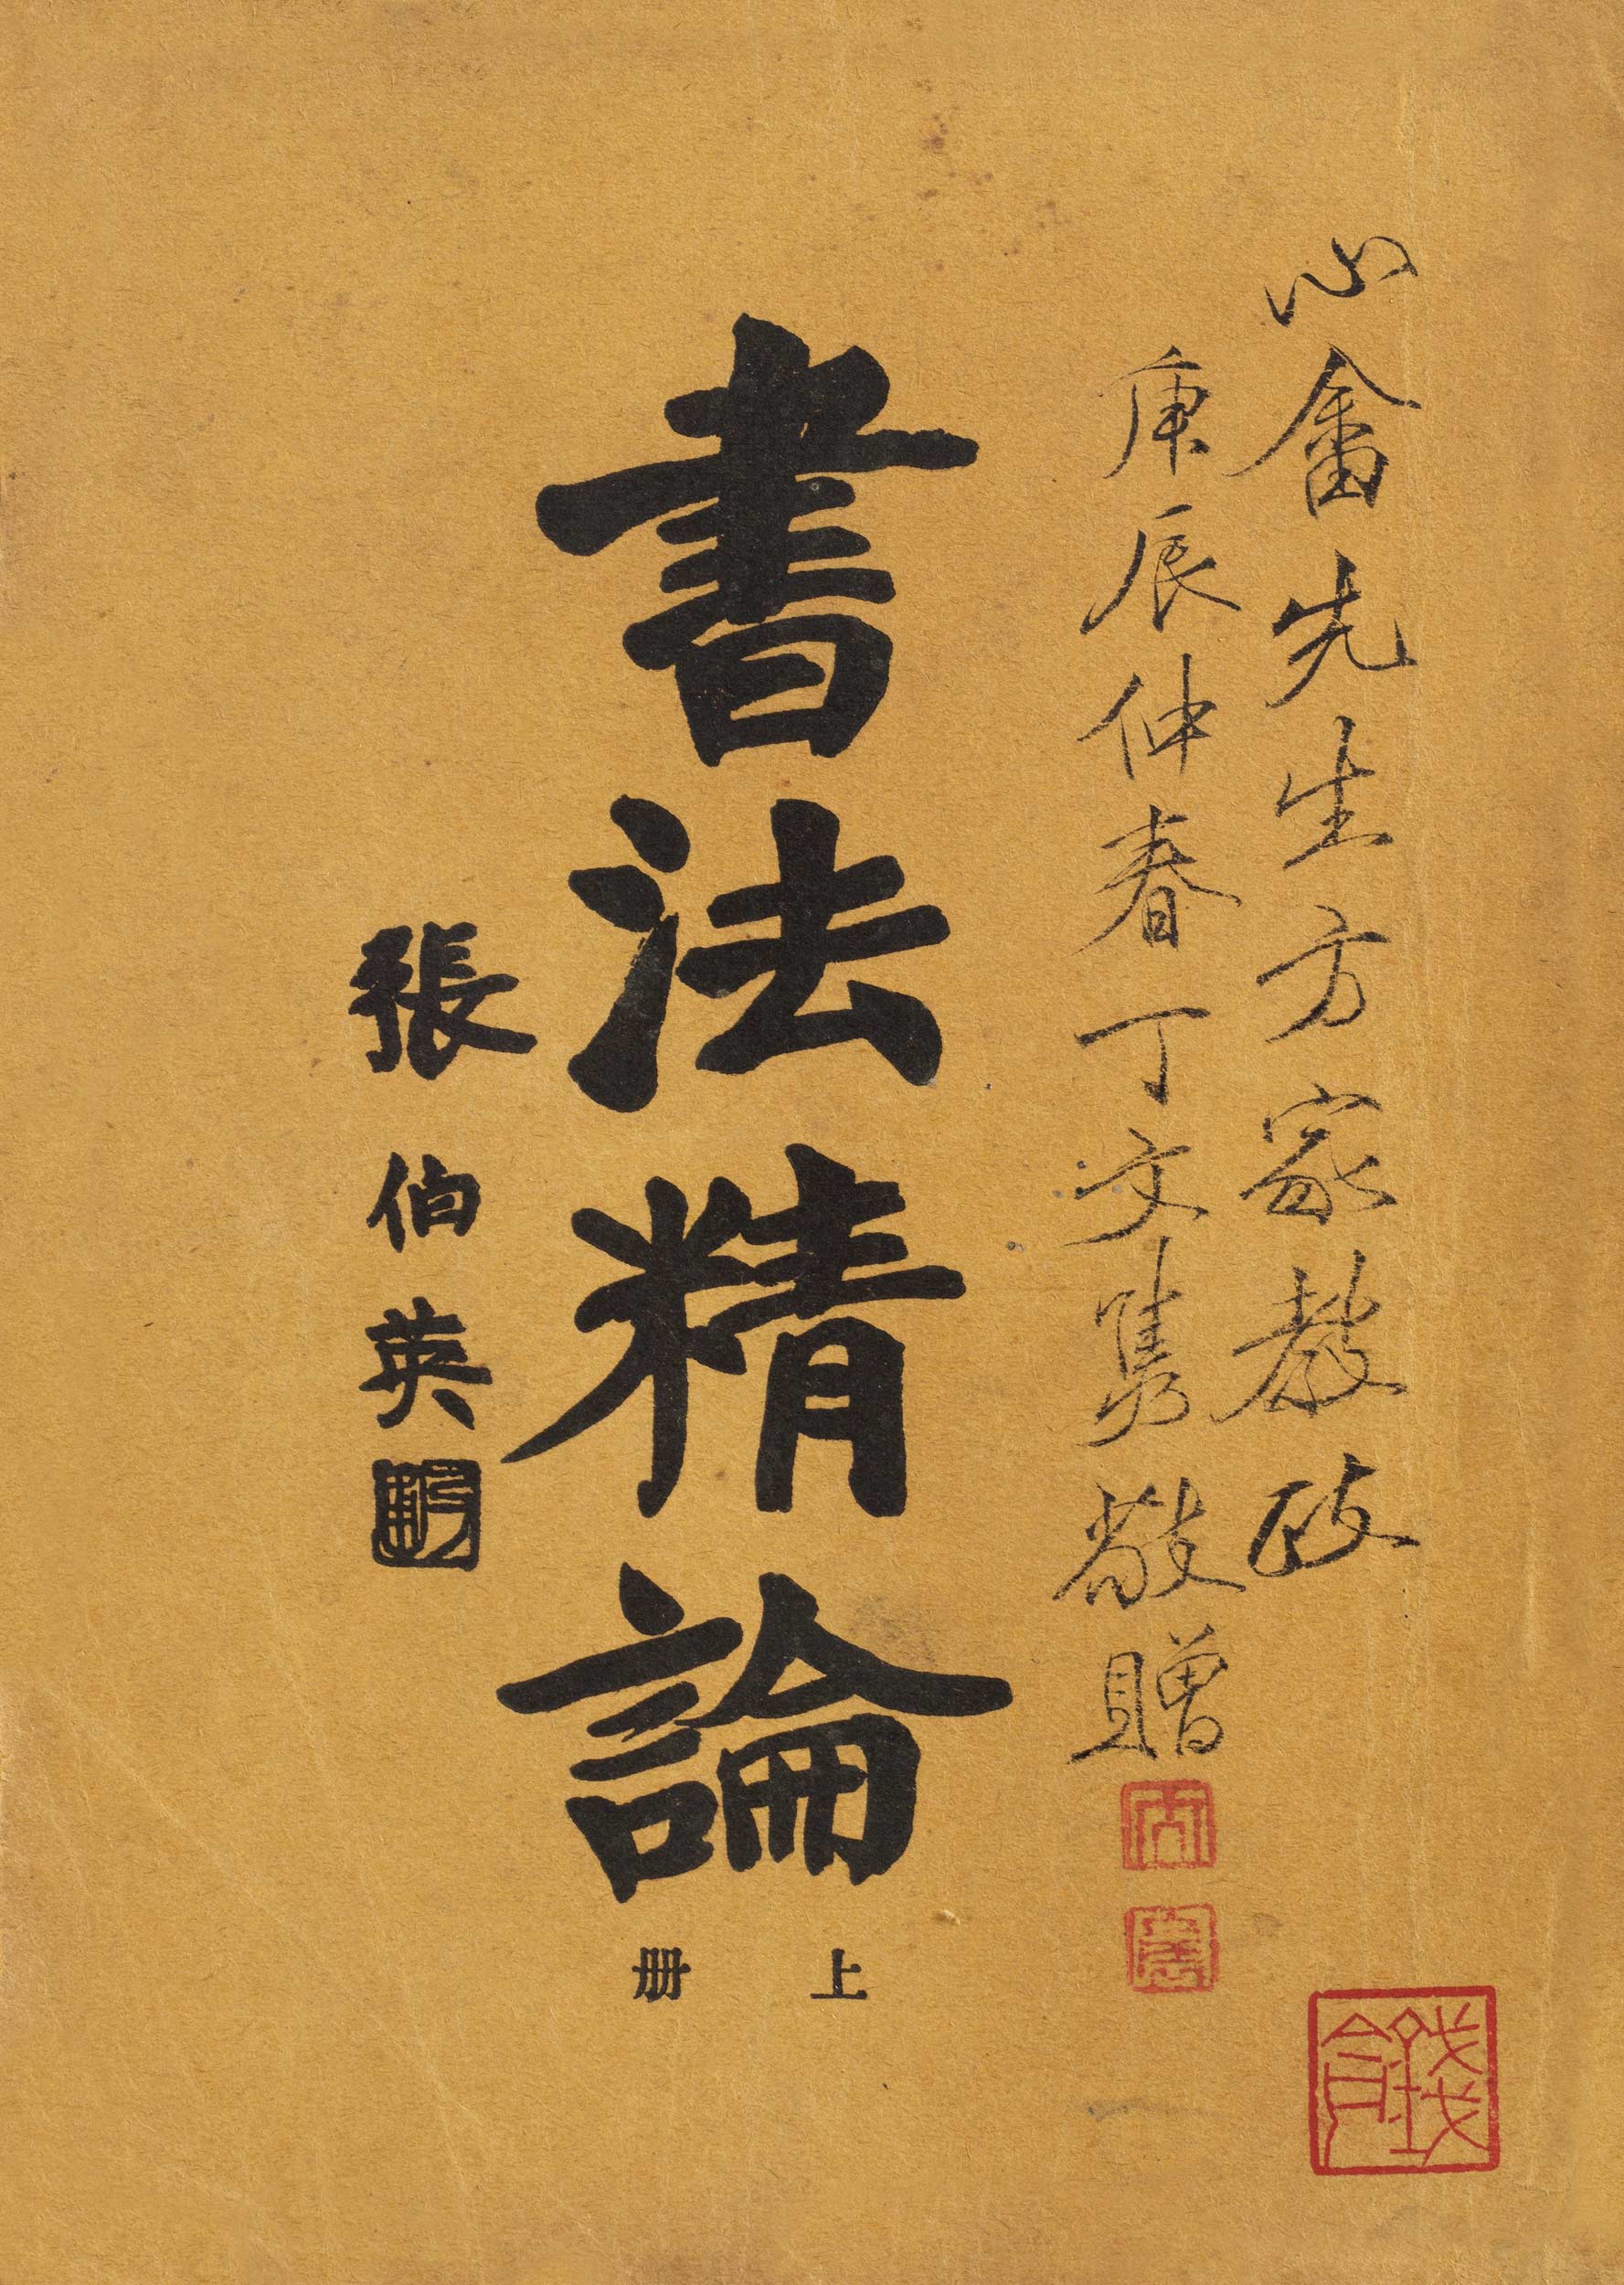 心畬先生方家教政
庚辰仲春丁文雋敬贈
書法精論
上册
張伯英